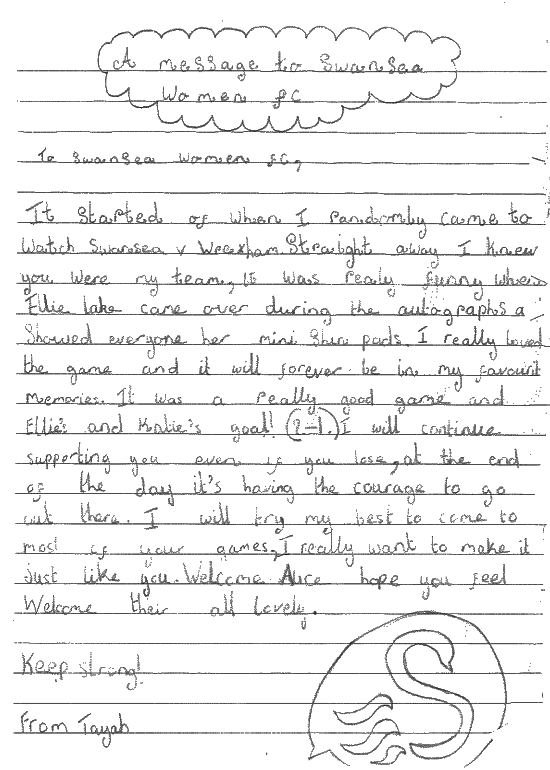 A message to Swansea
Women fc
To Swansea Women fc,
It started of when I randomly came to
Watch Swansea v Wrexham. Straight away I knew
you were my team, It was realy funny when
Ellie lake came over during the autographs a
Showed everyone her mini Shin pads. I really loved
the game and it will forever be in my favourit
memories. It was a really good game and
Ellie's and Katie's goal! (2-1.) I will continue
supporting you even if you lose, at the end
of the day it's having the courage to go
out there. I will try my best to come to
most of your games, I really want to make it
just like you. Welcome Alice hope you feel
Welcome their all lovely.
Keep strong!
From Tayah